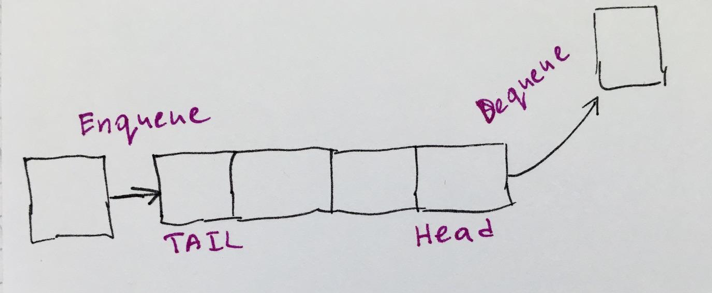 Enqueue
Dequeue
TAIL
Head